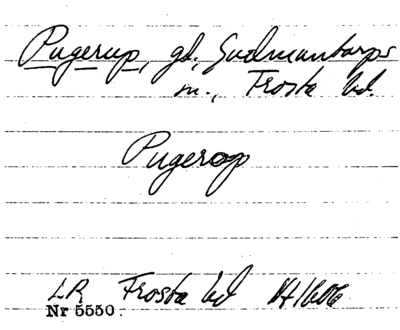 Pugerup, gd, Gudmuntorps
sn., Frosta hd.
Pugerop
LR Frosta hd 1606
Nr 5550